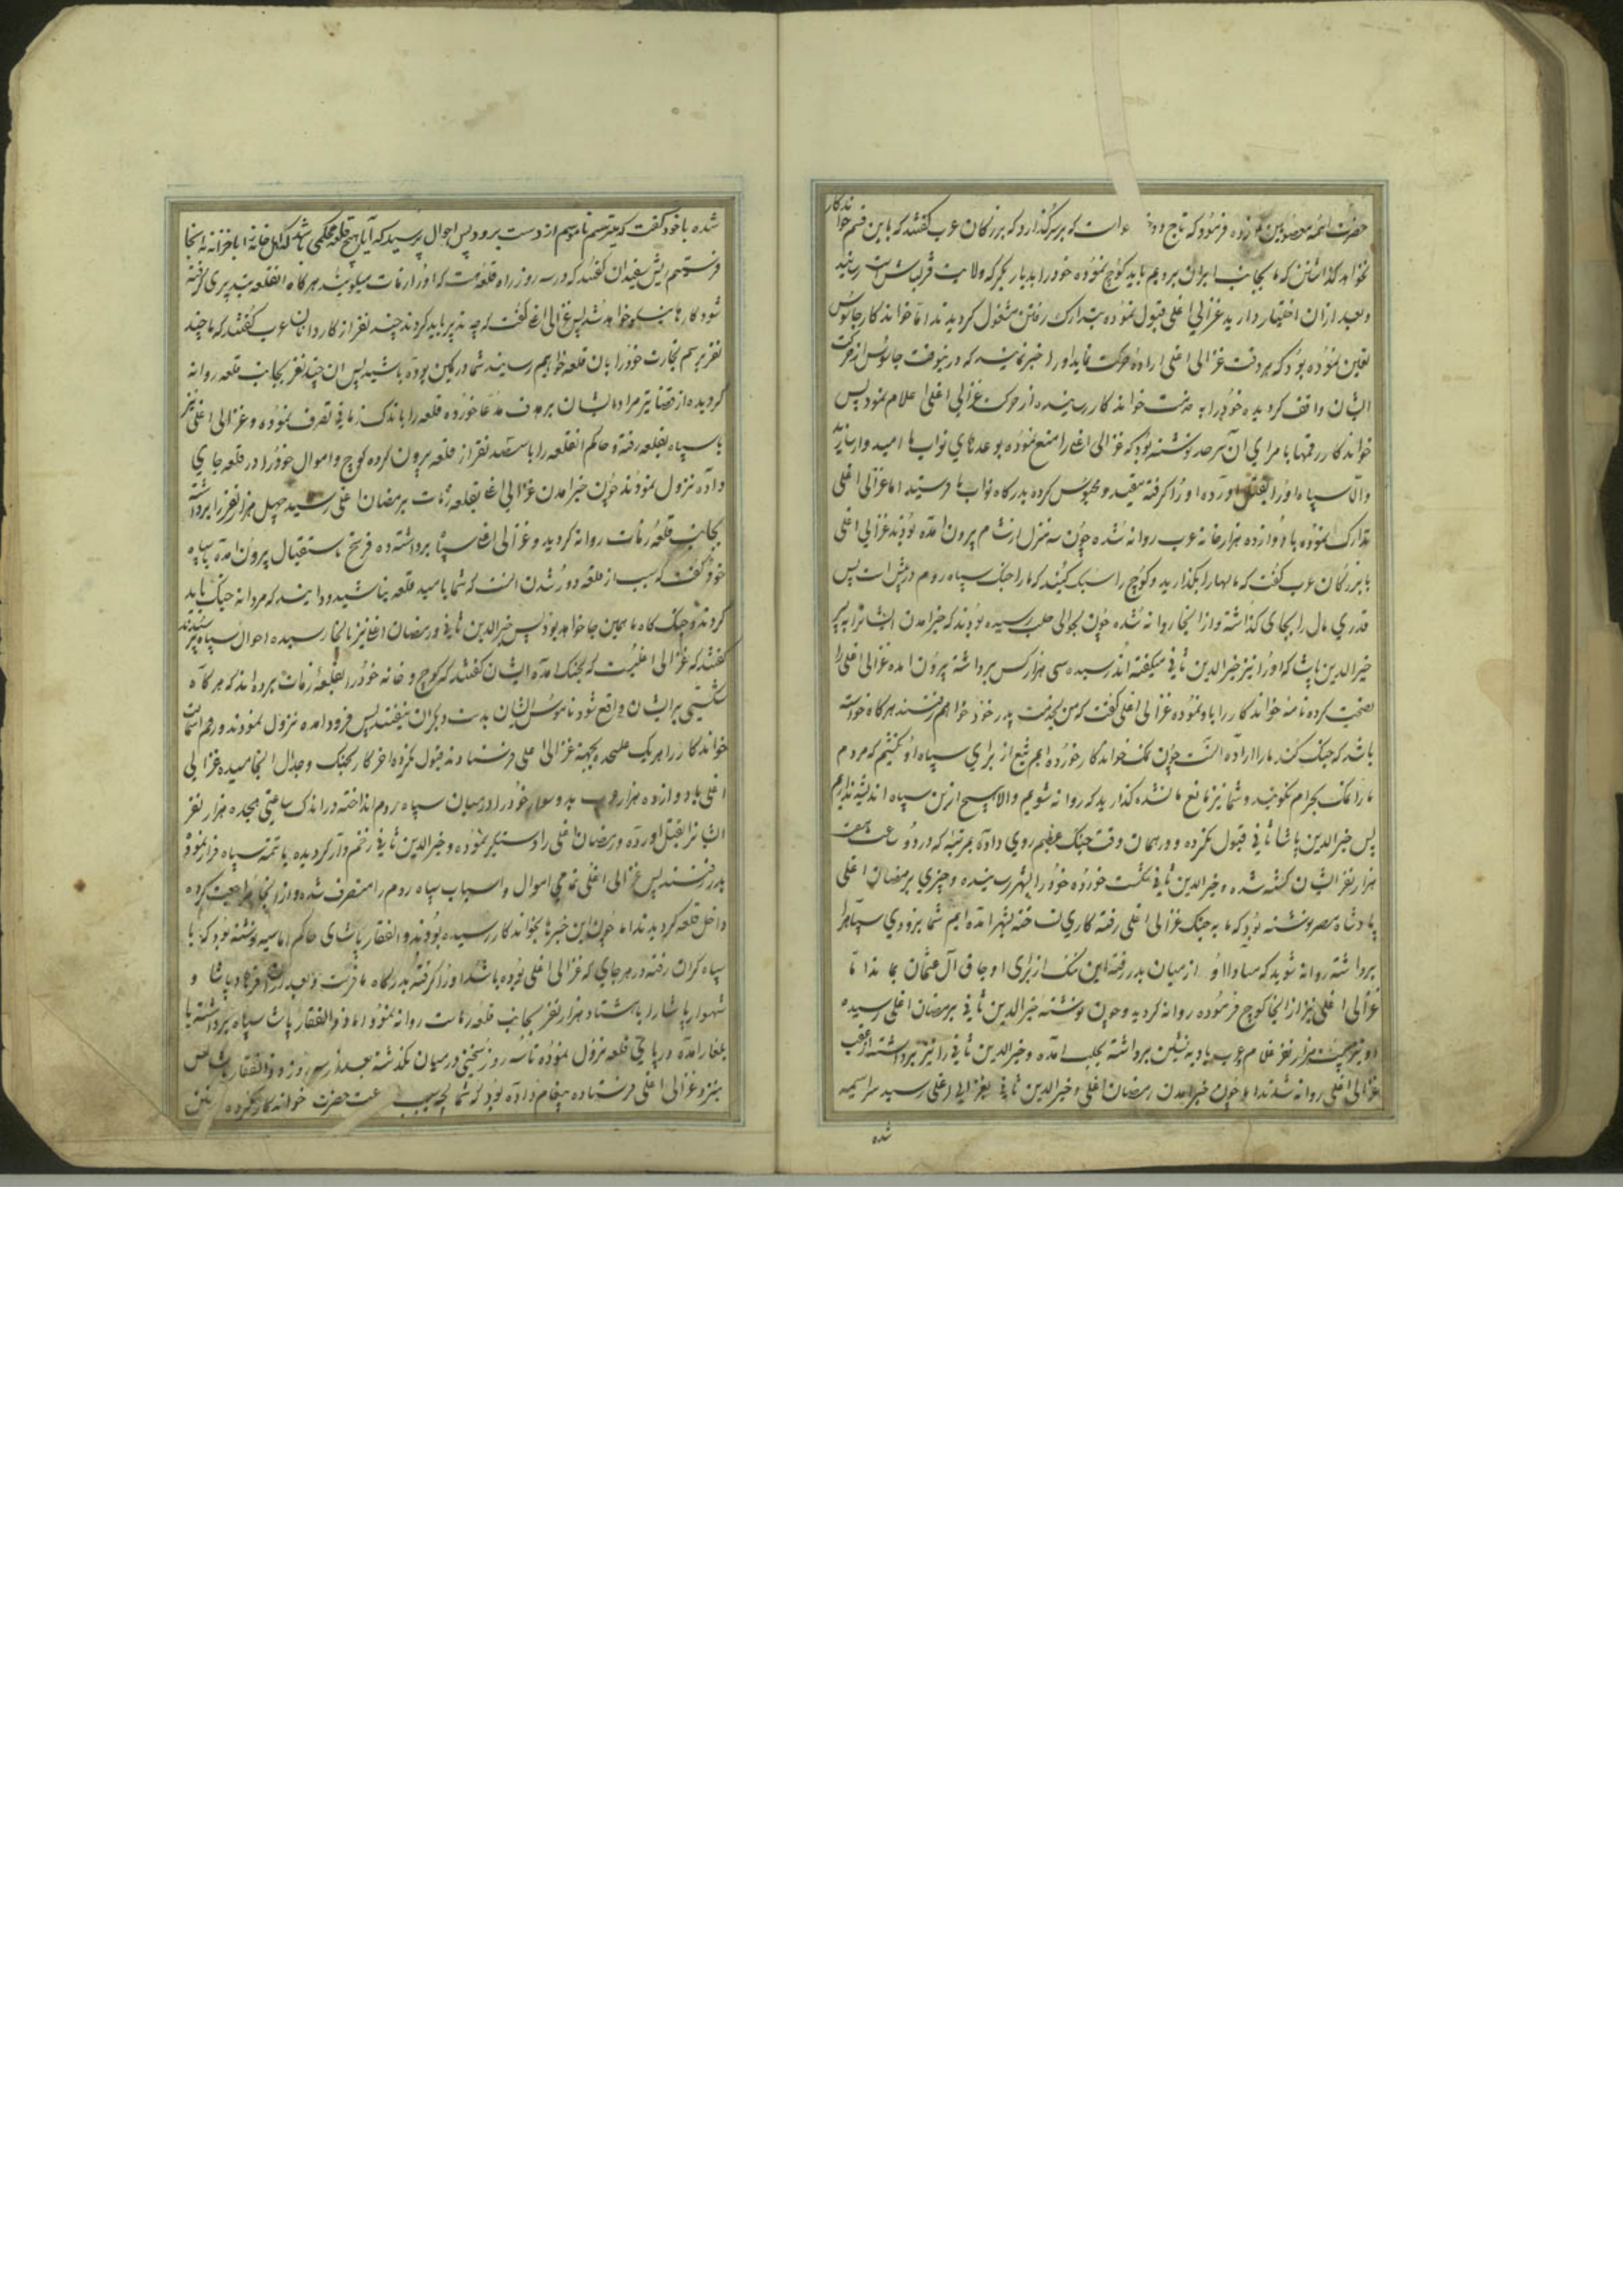 حضرت ائمه معصومین فرموده که تاج دو است که بر سر گذارد که بزرگان عرب گفتند که باین قسم خواندکار
نخواهد گذاشتن که ما بجانب ایران برویم باید کوچ نموده خود را بدیار بکر که ولایت قزلباش است رسانید
و بعد از آن اختیار دارید غزالی اغلی قبول نموده بتدارک رفتن مشغول گردیدند اما خواندکار جاسوس
تعین نموده بود که هر وقت غزالی اغلی اراده حرکت نماید او را خبر نمایند که درینوقت جاسوس از حرکت
ایشان واقف گردیده خود را به خدمت خواندکار رسانیده از حرکت غزالی اغلی اعلام نمود پس
خواندکار رقمها بامرای آن سرحد نوشته بود که غزالی اغلی را منع نموده بوعدهای نواب ما امیدوار سازید
والا سپاه او را بقتل آورده او را گرفته مقید و محبوس کرده بدرکاه نواب ما فرستید اما غزالی اغلی
تدارک نموده با دوازده هزار خانه عرب روانه شده چون سه منزل از شام بیرون آمده بودند غزالی اغلی
با بزرگان عرب گفت که مالها را بگذارید و کوچ را سبک کنید که ما را جنک سپاه روم در پیش است پس
قدری مال را بجای گذاشته و از آنجا روانه شده چون بحوالی حلب رسیده بودند که خبر آمدن ایشان را به
خیرالدین پاشا که او را نیز خیرالدین ثانی میگفته اند رسیده سی هزار کس برداشته بیرون آمده غزالی اغلی را
نصیحت کرده نامه خواندکار را باو نموده غزالی اغلی گفت که من بخدمت پدر خود خواهم رفت هرکاه خواسته
باشد که جنک کند ما را اراده انست چون نمک خواندکار خورده ایم تیغ از برای سپاه او نکشیم که مردم
ما را نمک بحرام نگویند و شما نیز مانع ما نشده گذارید که روانه شویم والا هیچ ازین سپاه اندیشه نداریم
پس خیرالدین پاشا ثانی قبول نکرده و در همان وقت جنک عظیم روی داده بمرتبه که در دو ساعت هفت
هزار نفر ایشان کشته شده و خیرالدین ثانی شکست خورده خود را بشهر رسانیده و چیزی برمضان اغلی
پادشاه مصر نوشته بود که ما به جنک غزالی اغلی رفته کاری نساخته بشهر آمده ایم شما بزودی سپاه را
برداشته روانه شوید که مبادا او از میان بدر رفته این ننک از برای اوجاق آل عثمان بماند تا
غزالی اغلی نیز از انجا کوچ فرموده روانه گردید و چون نوشته خیرالدین ثانی برمضان اغلی رسیده
او نیز بیست هزار نفر غلام و عرب بادیه نشین برداشته بحلب آمده و خیرالدین ثانی را نیز برداشته از عقب
غزالی اغلی روانه شدند اما چون خبر آمدن رمضان اغلی و خیرالدین ثانی بغزالی اغلی رسید سراسیمه
شده
شده با خود گفت که میترسم ناموسم از دست برود پس احوال پرسید که آیا هیچ قلعه محکمی باشد که اهل خانه را با خزانه بانجا
فرستیم ریش سفیدان گفتند که در سه روزه راه قلعه هست که او را رمات میگویند هرکاه انقلعه بتدبیری گرفته
شود کارها نیکو خواهد شد پس غزالی اغلی گفت که چه تدبیر باید کرد چند نفر از کاردانان عرب گفتند که ما چند
نفر برسم تجارت خود را بان قلعه خواهیم رسانید شما در کمین بوده باشید پس ان چند نفر بجانب قلعه روانه
گردیده از قضا تیر مراد ایشان بر هدف مدعا خورده قلعه را باندک زمانی تصرف نموده و غزالی اغلی نیز
با سپاه بقلعه رفته و حاکم انقلعه را با سیصد نفر از قلعه بیرون کرده کوچ و اموال خود را در قلعه جای
داده نزول نمودند چون خبر آمدن غزالی اغلی بقلعه رمات برمضان اغلی رسید چهل هزار نفر را برداشته
بجانب قلعه رمات روانه گردید و غزالی اغلی سپاه برداشته ده فرسخ باستقبال بیرون آمده بسپاه
خود گفت که سبب از قلعه دور شدن انست که شما بامید قلعه نباشید و دانید که مردانه جنک باید
کرد و جنک کاه ما همین جا خواهد بود پس خیرالدین ثانی و رمضان اغلی نیز بانجا رسیده احوال سپاه پرسیدند
گفتند که غزالی اغلیست که بجنک آمده ایشان گفتند که کوچ و خانه خود را بقلعه رمات برده اند که هرکاه
شکستی بر ایشان واقع شود ناموس ایشان بدست دیگران نیفتد پس فرود آمده نزول نمودند و رقم استمالت
خواندکار را هر یک علیحده بجهته غزالی اغلی فرستادند قبول نکرده آخر کار بجنک و جدال انجامیده غزالی
اغلی با دوازده هزار عرب بدو سوار خود را در میان سپاه روم انداخته در اندک ساعتی هجده هزار نفر
ایشان را بقتل آورده و رمضان اغلی را دستگیر نموده و خیرالدین ثانی زخم دار گردیده با تتمه سپاه فرار نموده
بدر رفتند پس غزالی اغلی تمامی اموال و اسباب سپاه روم را متصرف شده و از آنجا مراجعت کرده
داخل قلعه گردیدند اما چون این خبرها بخواندکار رسیده بود ذوالفقار پاشای حاکم اماسیه نوشته بود که با
سپاه گران رفته در هر جای که غزالی اغلی بوده باشد او را گرفته بدرکاه ما فرست و بعد از آن فرهاد پاشا و
شهوار پاشا را با هشتاد هزار نفر بجانب قلعه رمات روانه نمود اما ذوالفقار پاشا سپاه برداشته با
یلغار آمده در پای قلعه نزول نموده تا سه روز سخنی در میان نگذشته بعد از سه روز ذوالفقار پاشا کس
بنزد غزالی اغلی فرستاده پیغام داده بود که شما بچه سبب حضرت خواندکار نکرده